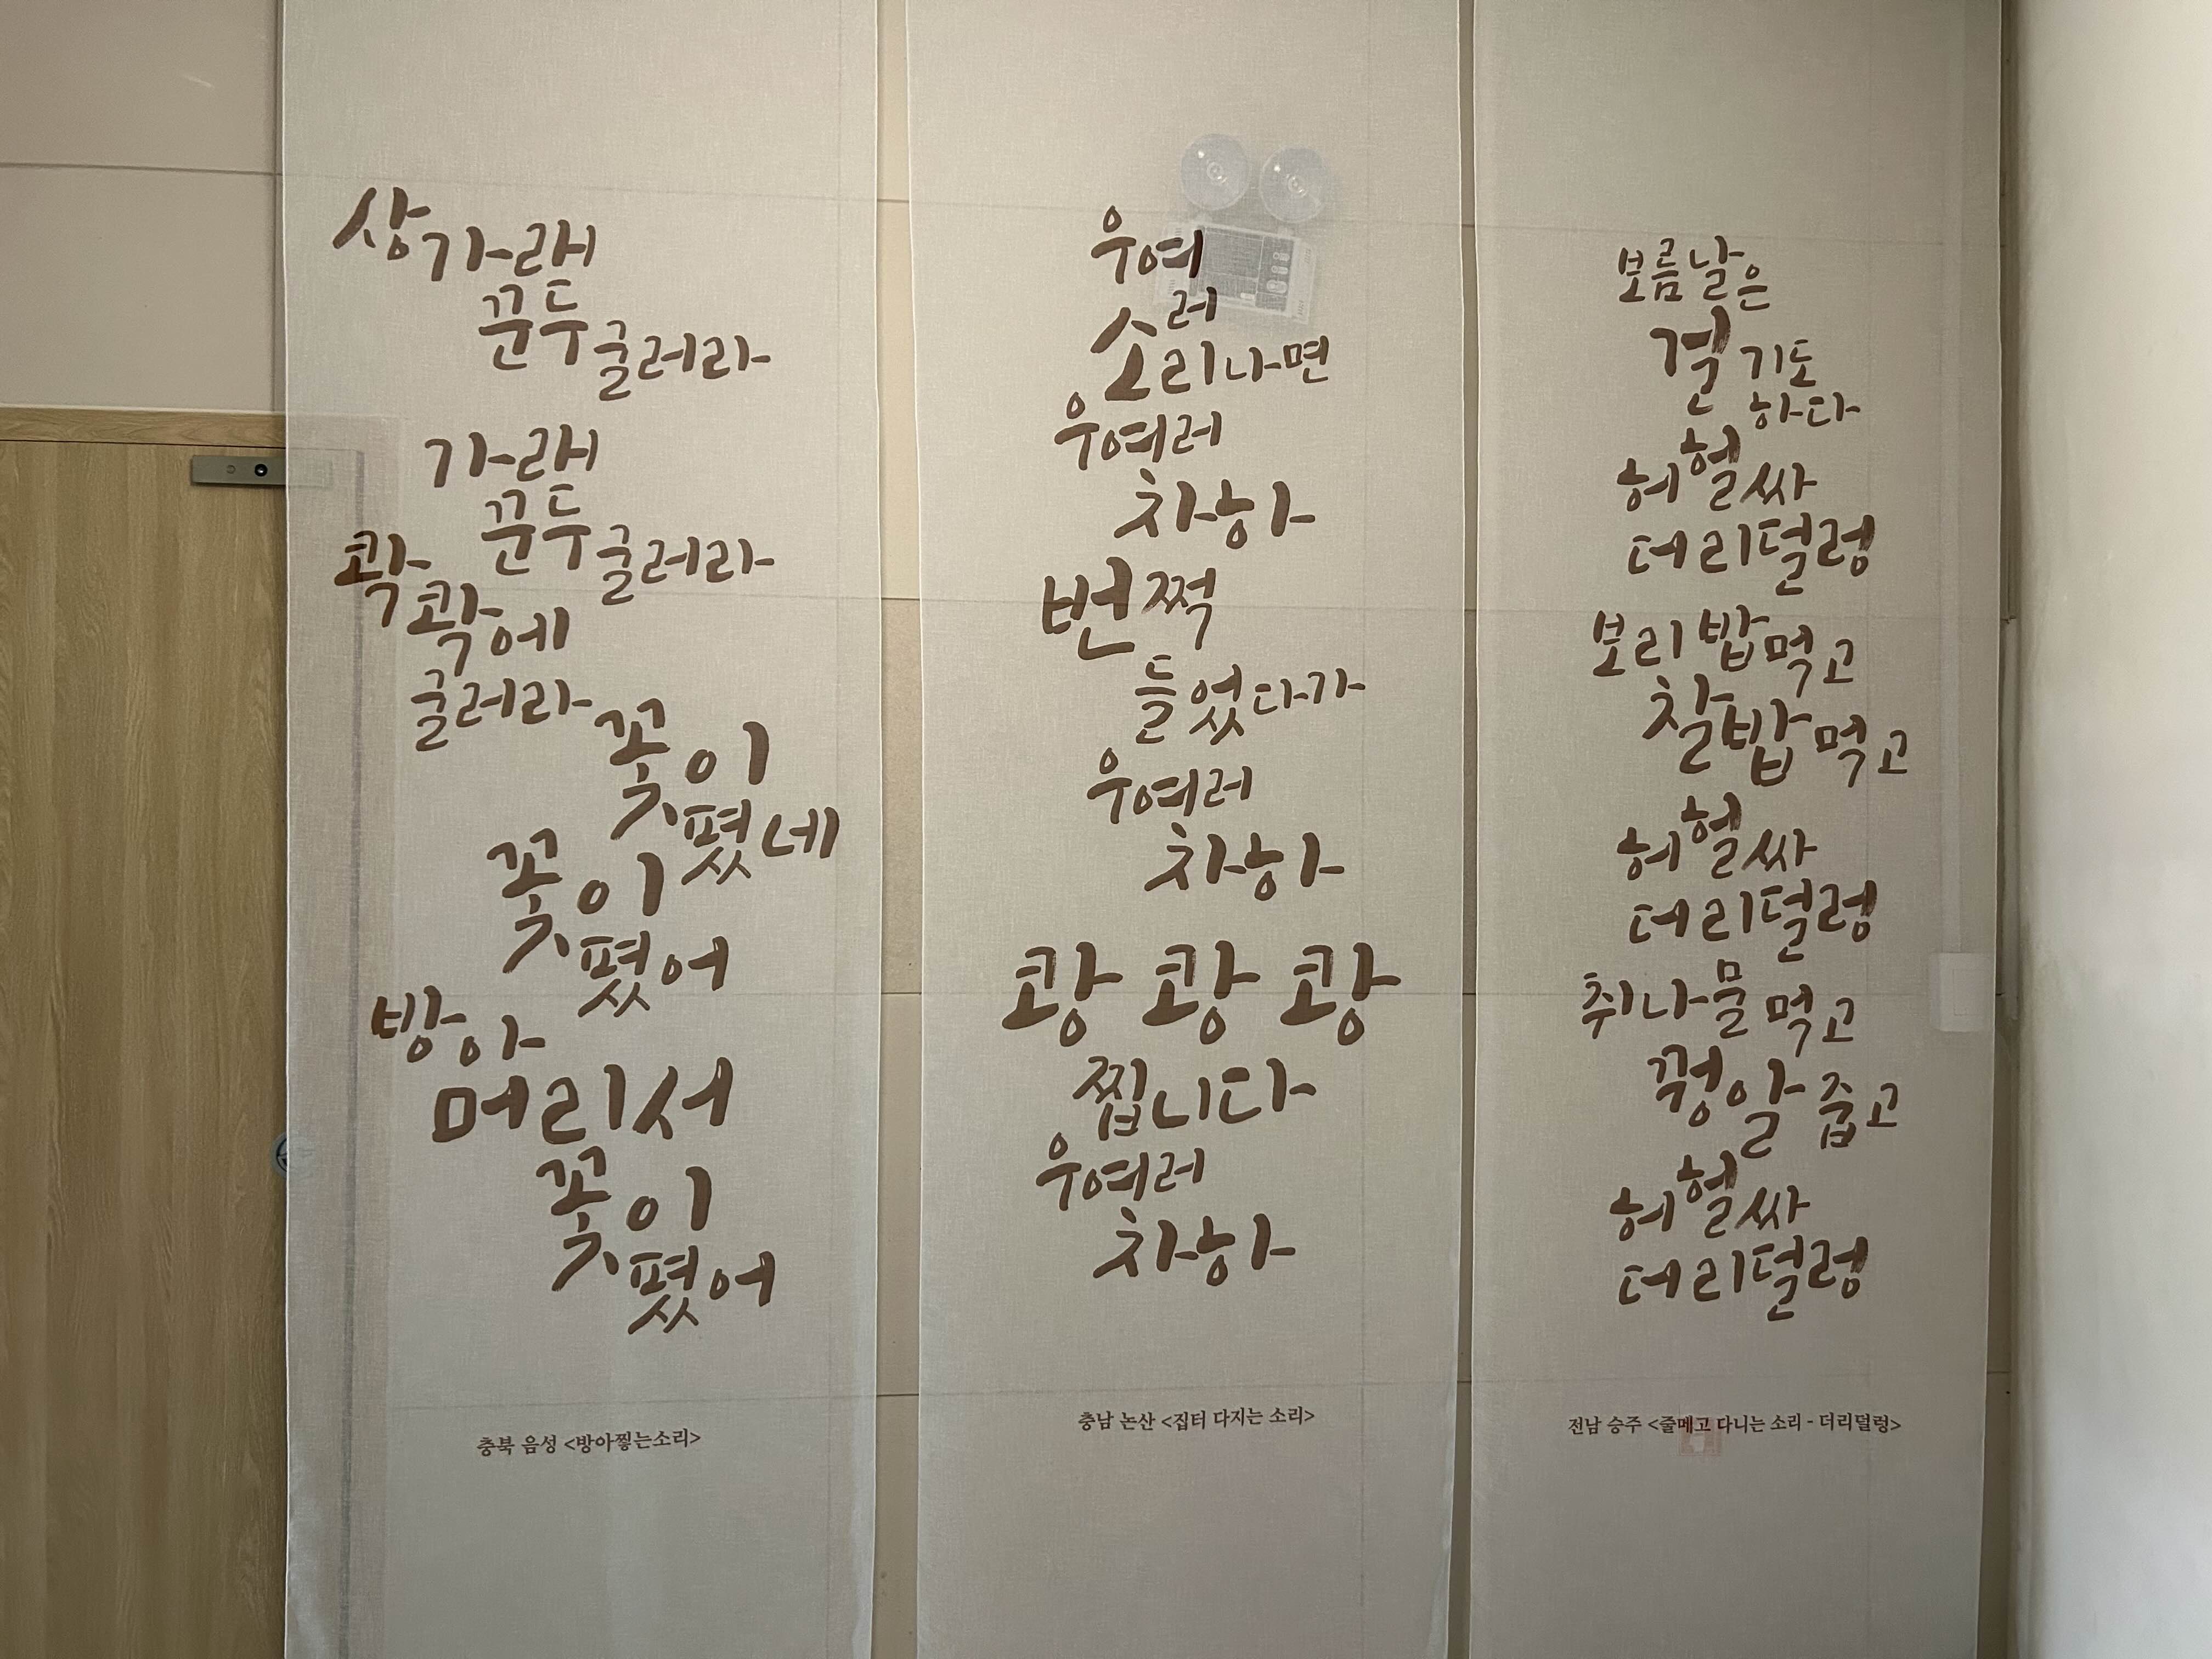 상가래
꾼두굴러라
가래
꾼두굴러라
콱콱에
굴러라
꽃이
폈네
꽃이
폈어
방아
머리서
꽃이
폈어
충북 음성 <방아찧는소리>
우여
러
소리나면
우여러
차하
번쩍
들었다가
우여러
차하
쾅 쾅 쾅
찝니다
우여러
차하
충남 논산 <집터 다지는 소리>
보름날은
걷기도
하다
허헐싸
더리덜렁
보리밥먹고
찰밥먹고
허헐싸
더리덜렁
취나물먹고
꿩알줍고
허헐싸
더리덜렁
전남 승주 <줄메고 다니는 소리 - 더리덜렁>